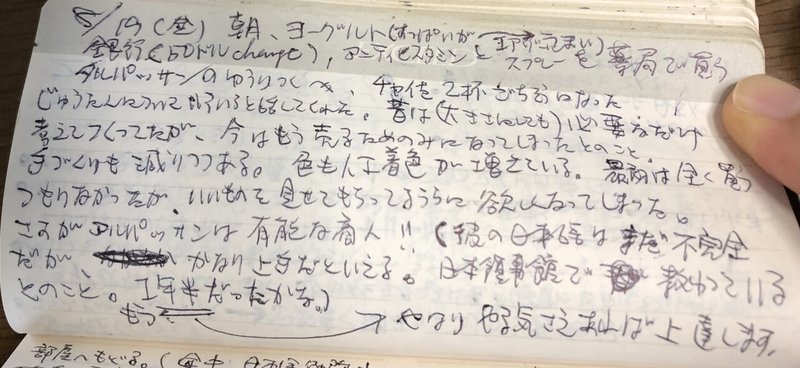 8/19(金) 朝、ヨーグルト(すっぱいが
銀行(50ドルchange), アンティヒスタミンと スプレーを薬局で買う
アルパッサンのゆうりつへ、チャイを2杯ごちそうになった
じゅうたんについていろいろと話してくれた。昔は(大きさにしても)必要な分だけ
考えてつくってたが、今はもう売るためのみになってしまったとのこと。
手づくりも減りつつある。色も人工着色が増えている。最初は全く買う
つもりなかったが、いいものを見せてもらってるうちに欲しくなってしまった。
さすがアルパッサンは有能な商人!! (彼の日本語はまだ不完全
だが、かなり上手だといえる。日本領事館で教わっている
とのこと。1年半だったかな。)
もう やはりやる気さえあれば上達します。
部屋へもどる。(